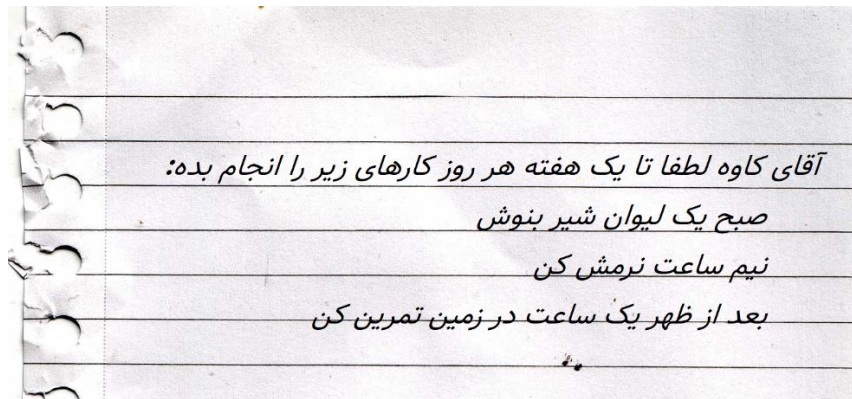 آقای کاوه لطفا تا یک هفته هر روز کارهای زیر را انجام بده:
صبح یک لیوان شیر بنوش
نیم ساعت نرمش کن
بعد از ظهر یک ساعت در زمین تمرین کن